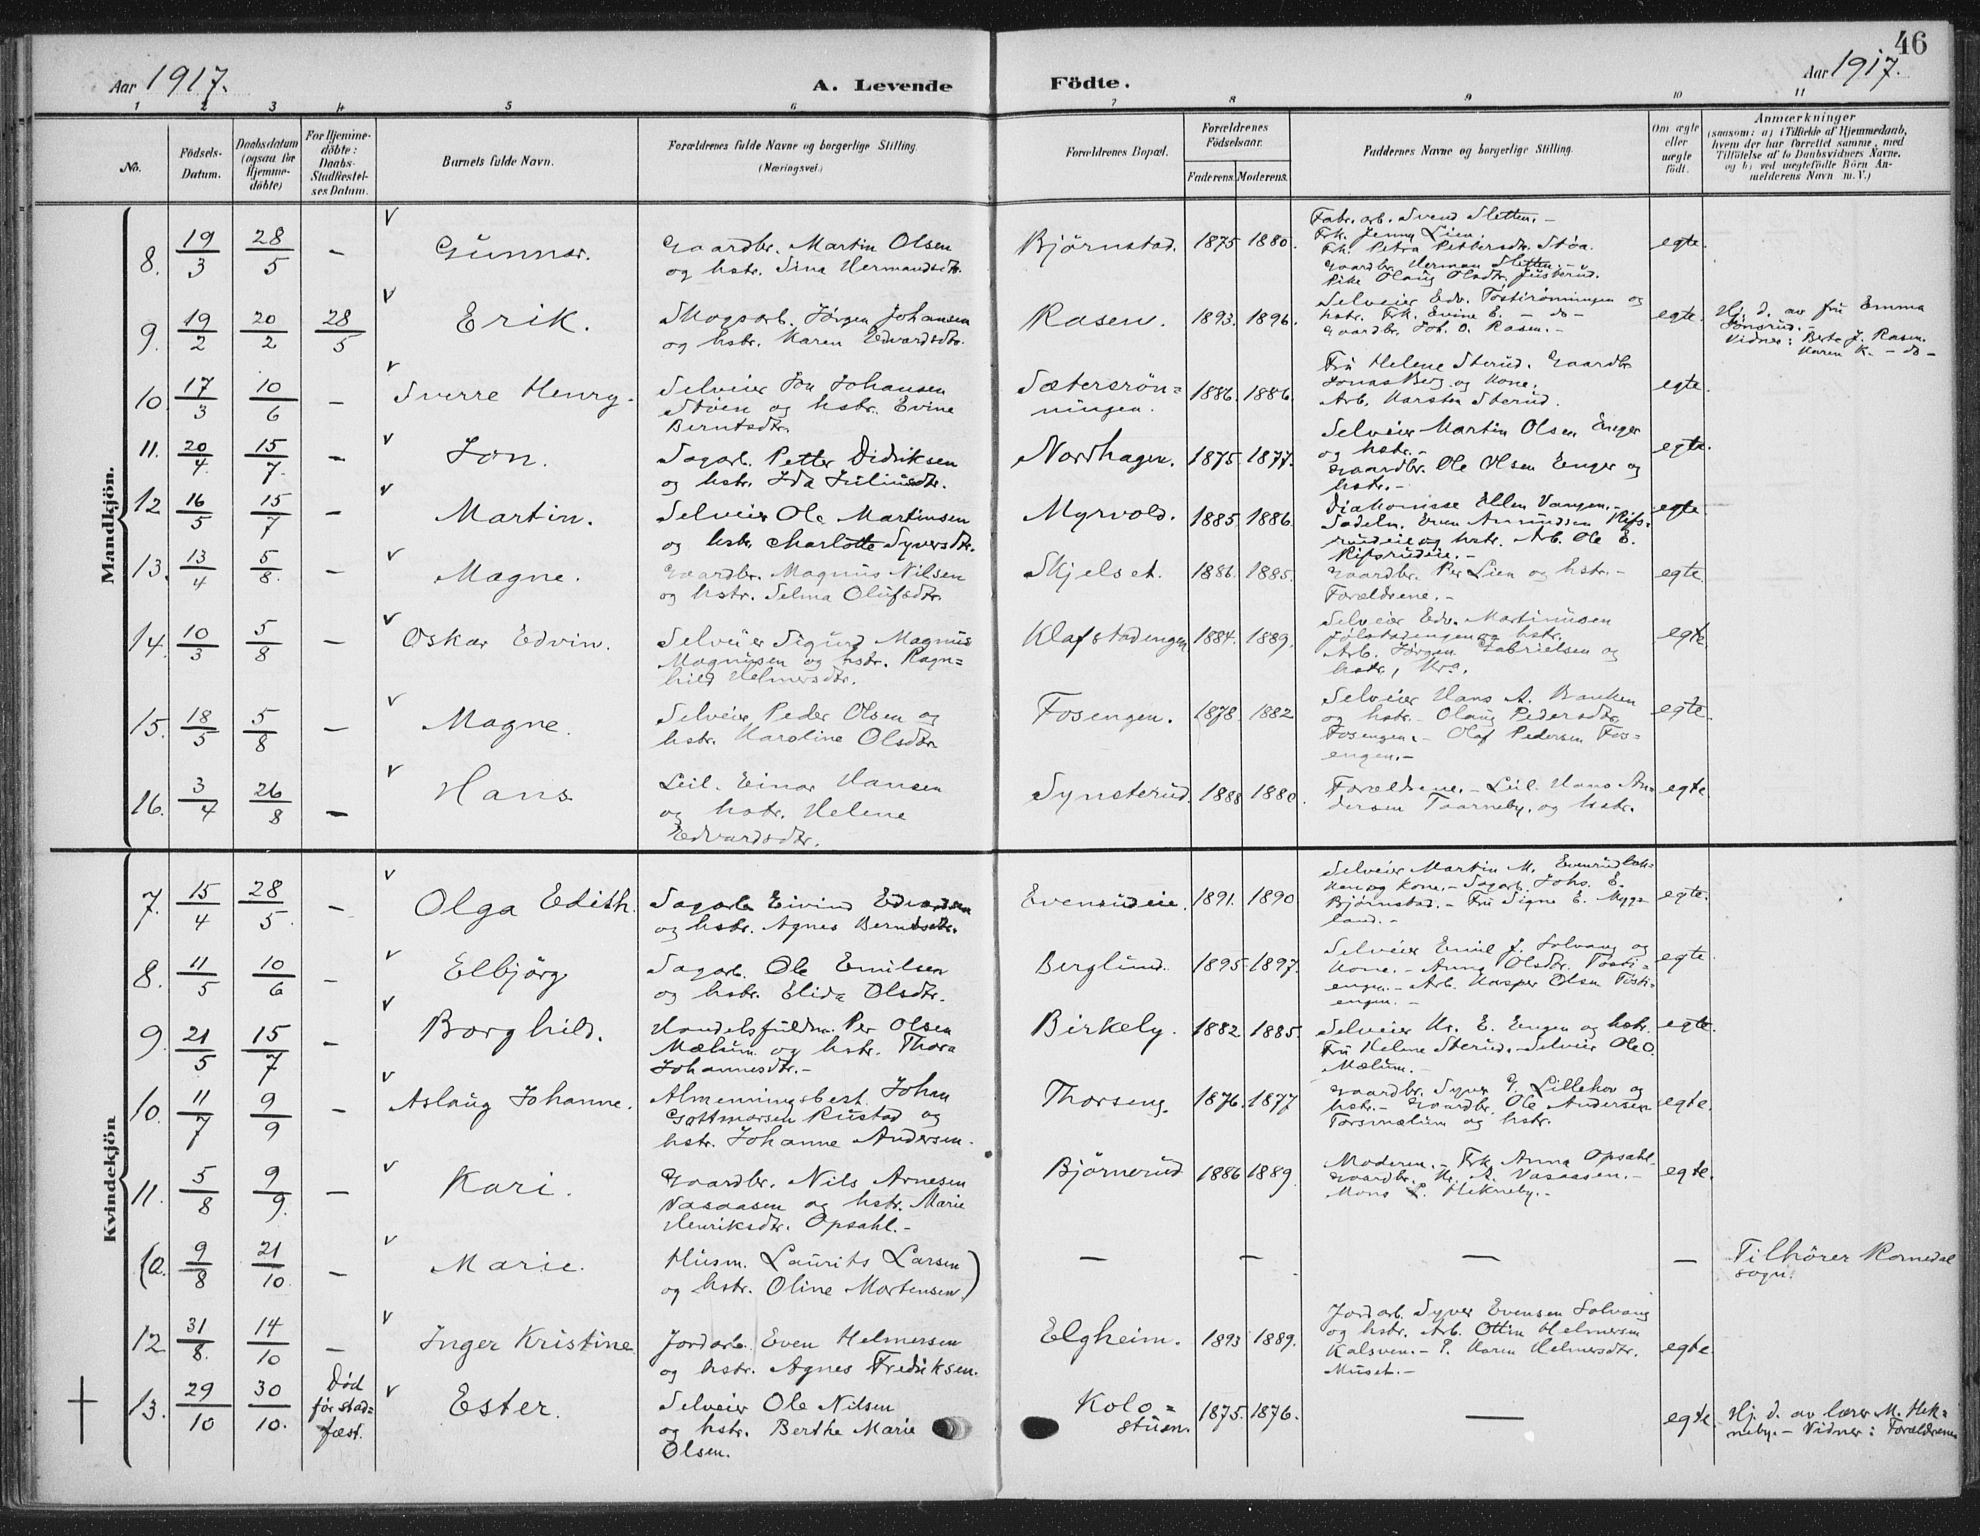 46
Aar 1917.
A. Levende
Födte.
Aar 1917.
1 2 3 4 5 6 7 8 9 10 11
No.
Födsels-
Datum.
Daabsdatum
(ogsaa for
Hjemme-
döbte)
For Hjemme-
döbte:
Daabs-
Stadfæstel-
ses Datum.
Barnets fulde Navn.
Forældrenes fulde Navne og borgerlige Stilling
(Næringsvei.)
Forældrenes Bopæl.
Forældrenes
Födselsaar.
Faderens. Moderens.
Faddernes Navne og borgerlige Stilling.
Om ægte
eller
uægte
födt.
Anmærkninger
(saasom: a) i Tilfælde af Hjemmedaab,
hvem der har forrettet samme, med
Tilföielse af to Daabsvidners Navne,
og b) ved uægtefödte Börn An-
melderens Navn m. V.)
Mandkjön.
8. 19/3 28/5 – Gunnar.
Gaardbr. Martin Olsen
og hstr. Sina Hermandsdtr.
Björnstad. 1875 1880.
Fabr. arb. Svend Sletten. –
Frk. Jenny Lien.
Frk. Petra Pettersdtr. Støa.
Gaardbr. Herman Sletten. –
Pike Olaug Olsdtr. Justerud.
egte.
9. 19/2 20/2 28/5 Erik.
Skogsarb. Jørgen Johansen
og hstr. Karen Edvardsdtr.
Rasen. 1893. 1896.
Selveier Edv. Tostirønningen og
hstr. Frk. Evine E. – do –
Gaardbr. Joh. O. Rasen. –
egte.
Hj. d. av fru Emma
Jønsrud. –
Vidner: Berte J. Rasen.
Karen K. – do –
10. 17/3 10/6 – Sverre Henry.
Selveier Jon Johansen
Støen og hstr. Evine
Berntsdtr.
Sætersrøn=
ningen. 1886. 1886.
Fru Helene Sterud. Gaardbr
Jonas Berg og Kone.
Arb. Karsten Sterud.
egte.
11. 20/4 15/7 – Jon.
Sagarb. Petter Didriksen
og hstr. Ida Juliusdtr.
Nordhagen. 1875 1877.
Selveier Martin Olsen Enger
og hstr. –
Gaardbr. Ole Olsen Enger og
hstr. –
egte.
12 16/5 15/7 – Martin.
Selveier Ole Martinsen
og hstr. Charlotte Syversdtr.
Myrvold. 1885 1886.
Diakonisse Ellen Vangen. –
Sadelm. Even Amundsen Rifs-
rudeie og hstr. Arb. Ole E.
Rifsrudeie. –
egte.
13. 13/4 5/8. – Magne.
Gaardbr. Magnus Nilsen
og hstr. Selma Olufsdtr.
Skjelset. 1886. 1885.
Gaardbr. Per Lien og hstr. –
Forældrene. –
egte.
14. 10/3 5/8 – Oskar Edvin.
Selveier Sigurd Magnus
Magnusen og hstr. Ragn=
hild Helmersdtr.
Klafstadengen 1884. 1889.
Selveier Edv. Martinusen
Jølstadengen og hstr.
Arb. Jørgen Gabrielsen og
hstr., Kra.
egte
15. 18/5 5/8 – Magne.
Selveier Peder Olsen og
hstr. Karoline Olsdtr
Fosengen. 1878. 1882
Selveier Hans A. Bakken
og hstr. – Olaug Pedersdtr.
Fosengen. – Olaf Pedersen Fos=
engen. –
egte.
16. 3/4 26/8 – Hans
Leil. Einar Hansen
og hstr. Helene
Edvardsdtr.
Synsterud. 1888 1880.
Forældrene. – Leil. Hans An=
dersen Taarneby, og hstr.
egte.
Kvindekjön
7. 15/4 28/5. – Olga Edith.
Sagarb. Eivind Edvardsen
og hstr. Agnes Berntsdtr.
Evenrudeie. 1891. 1890
Selveier Martin M. Evenrudbak=
ken og Kone. – Sagarb. Johs. E.
Bjørnstad. – Fru Signe E. Mygg=
land. –
egte.
8. 11/5 10/6 – Elbjörg
Sagarb. Ole Emilsen
og hstr. Elida Olsdtr.
Berglund. 1895 1897.
Selveier Emil J. Solvang og
Kone. – Anna Olsdtr. Tosti=
engen. – Arb. Kasper Olsen Tosti=
engen. –
egte
9. 21/5 15/7 – Borghild.
Handelsfuldm. Per Olsen
Mælum og hstr. Thora
Johannesdtr. –
Birkely. 1882 1885.
Selveier Kr. E. Engen og hstr.
Fru Helene Sterud. – Selveier Ole O.
Mælum. –
egte.
10. 11/7 9/9 – Aslaug Johanne.
Almenningsbest. Johan
Gottmarsen Rustad og
hstr. Johanne Andersen.
Thorseng. 1876. 1877
Gaardbr. Syver G. Lillehov og
hstr. – Gaardbr. Ole Andersen
Torsmælum og hstr.
egte.
11. 5/8 9/9. – Kari.
Gaardbr. Nils Arnesen
Vasaasen og hstr. Marie
Henriksdtr. Opsahl. –
Björnerud 1886 1889.
Moderen. – Frk. Anna Opsahl.
Gaardbr. Kr. A. Vasaasen. –
Mons L. Hekneby. –
egte.
(a. 9/8 21/10. – Marie.
Husm. Laurits Larsen)
og hstr. Oline Mortensen.
– – – –
Tilhörer Romedal
sogn.
12. 31/8. 14/10 – Inger Kristine
Jordarb. Even Helmersen
og hstr. Agnes Fredriksen.
Elgheim. 1893 1889.
Jordarb. Syver Evensen Solvang
og hstr. Arb. Ottin Helmersen
Kalsven. – P. Karen Helmersdtr.
Muset. –
egte.
13. 29/10 30/10.
Død
før stad=
fæst.
Ester.
Selveier Ole Nilsen
og hstr. Berthe Marie
Olsen.
Kolo=
stuen. 1875. 1876.
–
egte.
Hj. d. av lærer M. Hek=
neby. – Vidner: Forældrene